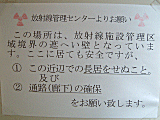 放射線管理センターよりお願い
この場所は、放射線施設管理区
域境界の遮へい壁となっていま
す。ここに居ても安全ですが、
① この近辺での長居をせぬこと。
及び
② 通路(廊下)の確保
をお願い致します。